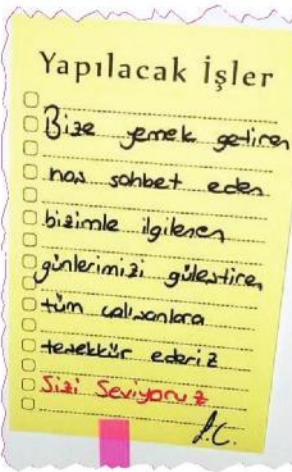 Yapılacak İşler
Bize yemek getiren
hoş sohbet eden
bizimle ilgilenen
günlerimizi güleştiren
tüm çalışanlara
teşekkür ederiz
Sizi Seviyoruz